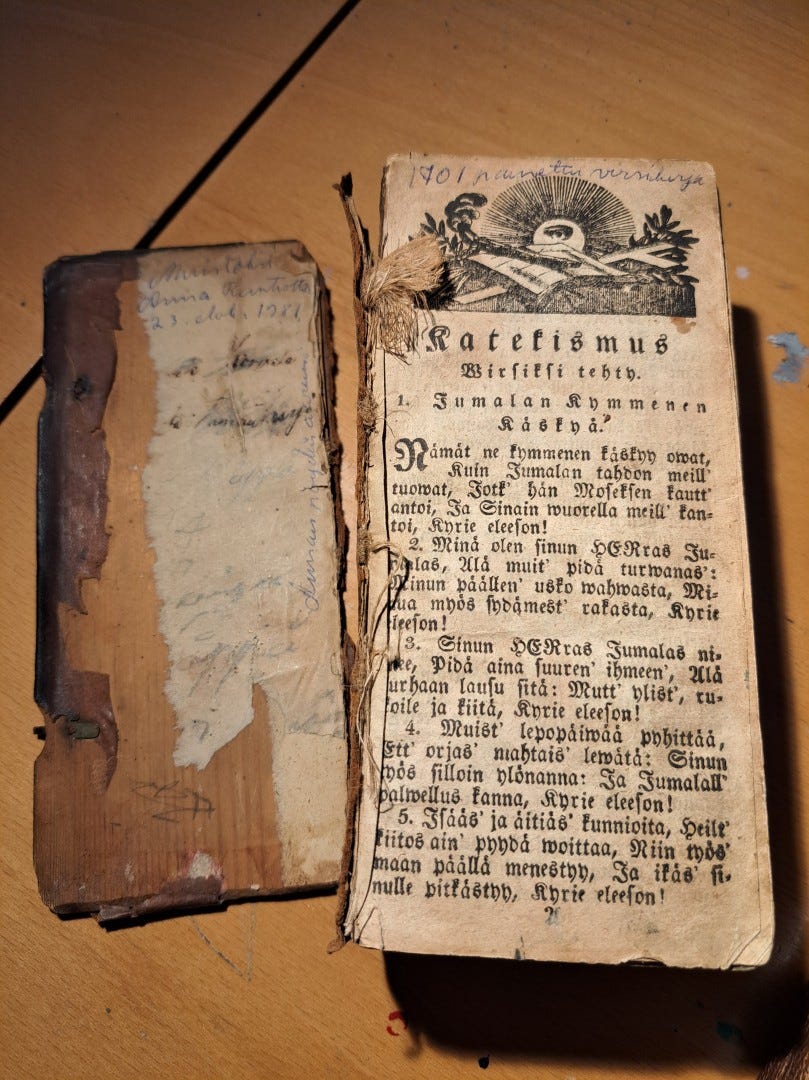 Anna
23. elok. 1981
1701 painettu virsikirja
Katekismus
Wirsiksi tehty.
1. Jumalan Kymmenen
Käskyä.
Nämät ne kymmenen käskyy owat,
Kuin Jumalan tahdon meill'
tuowat, Jotk' hän Moseksen kautt'
antoi, Ja Sinain wuorella meill' kan-
toi, Kyrie eleeson!
2. Minä olen sinun HERras Ju-
malas, Älä muit' pidä turwanas':
Minun päällen' usko wahwasta, Mi-
nua myös sydämest' rakasta, Kyrie
eleeson!
3. Sinun HERras Jumalas ni-
mee, Pidä aina suuren' ihmeen', Älä
turhaan lausu sitä: Mutt' ylist', ru-
koile ja kiitä, Kyrie eleeson!
4. Muist' lepopäiwää pyhittää,
Ett' orjas' mahtais' lewätä: Sinun
työs silloin ylönanna: Ja Jumalall'
palwellus kanna, Kyrie eleeson!
5. Isääs' ja äitiäs' kunnioita, Heilt'
kiitos ain' pyydä woittaa, Niin työs'
maan päällä menestyy, Ja ikäs' si-
nulle pitkästyy, Kyrie eleeson!